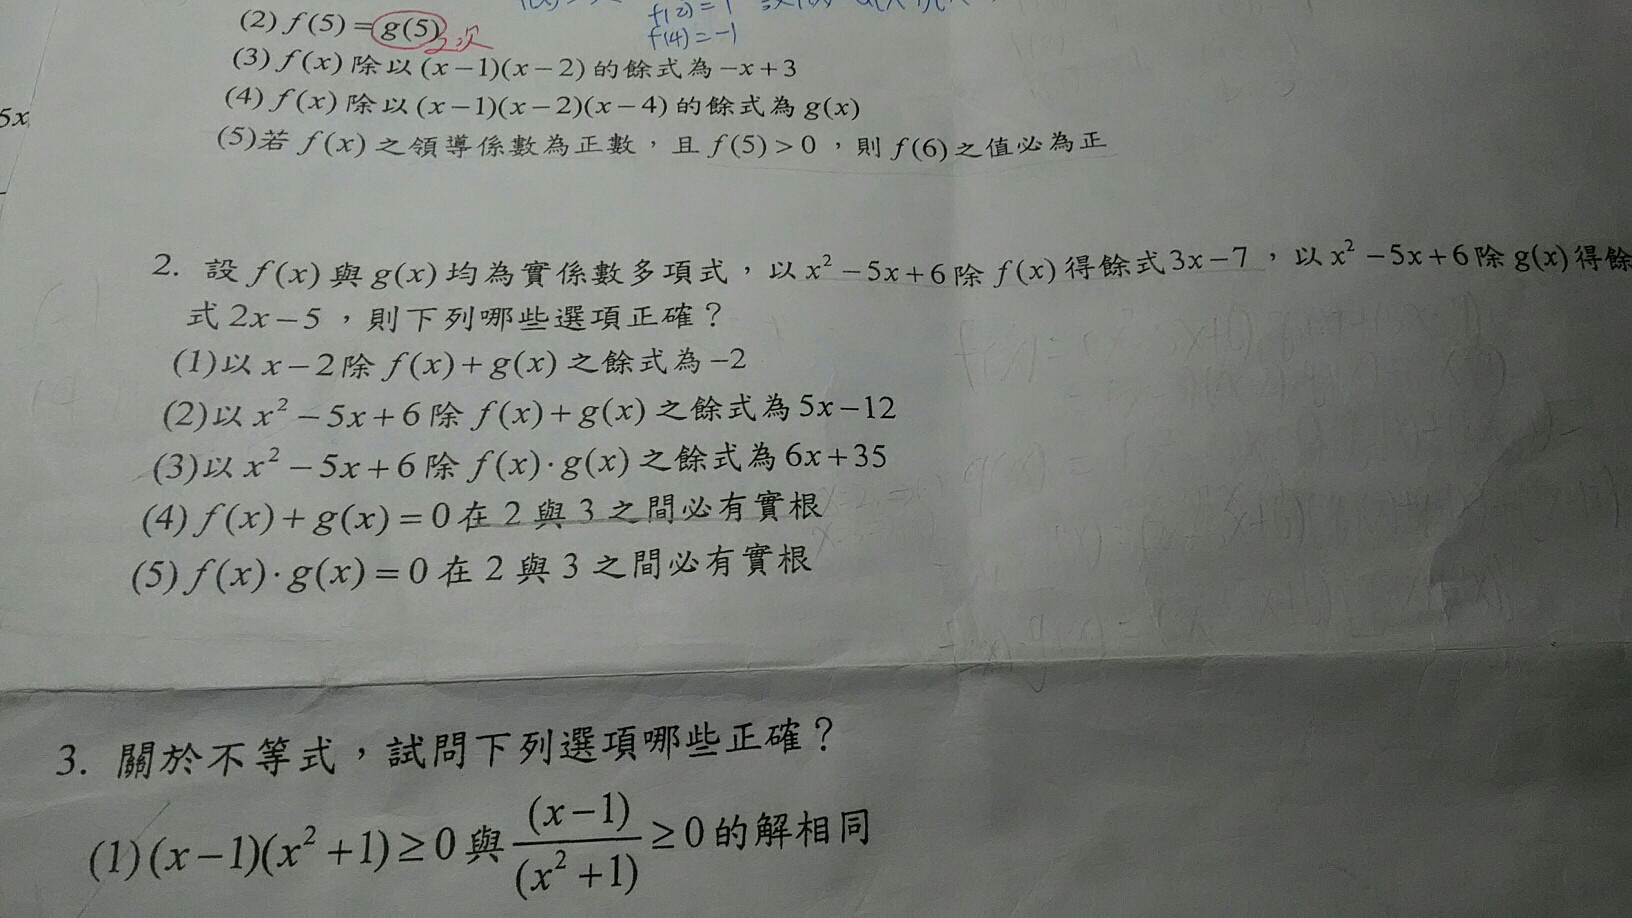 f(2)=1
(2) f(5)=g(5) 2次
f(4)=-1
(3) f(x) 除以 (x-1)(x-2) 的餘式為 -x+3
(4) f(x) 除以 (x-1)(x-2)(x-4) 的餘式為 g(x)
5x
(5)若 f(x) 之領導係數為正數,且 f(5)>0,則 f(6) 之值必為正
2. 設 f(x) 與 g(x) 均為實係數多項式,以 x²-5x+6 除 f(x) 得餘式 3x-7,以 x²-5x+6 除 g(x) 得餘
式 2x-5,則下列哪些選項正確?
(1)以 x-2 除 f(x)+g(x) 之餘式為 -2
(2)以 x²-5x+6 除 f(x)+g(x) 之餘式為 5x-12
(3)以 x²-5x+6 除 f(x)·g(x) 之餘式為 6x+35
(4) f(x)+g(x)=0 在 2 與 3 之間必有實根
(5) f(x)·g(x)=0 在 2 與 3 之間必有實根
3. 關於不等式,試問下列選項哪些正確?
(1)(x-1)(x²+1)≥0 與 (x-1)/(x²+1) ≥0 的解相同